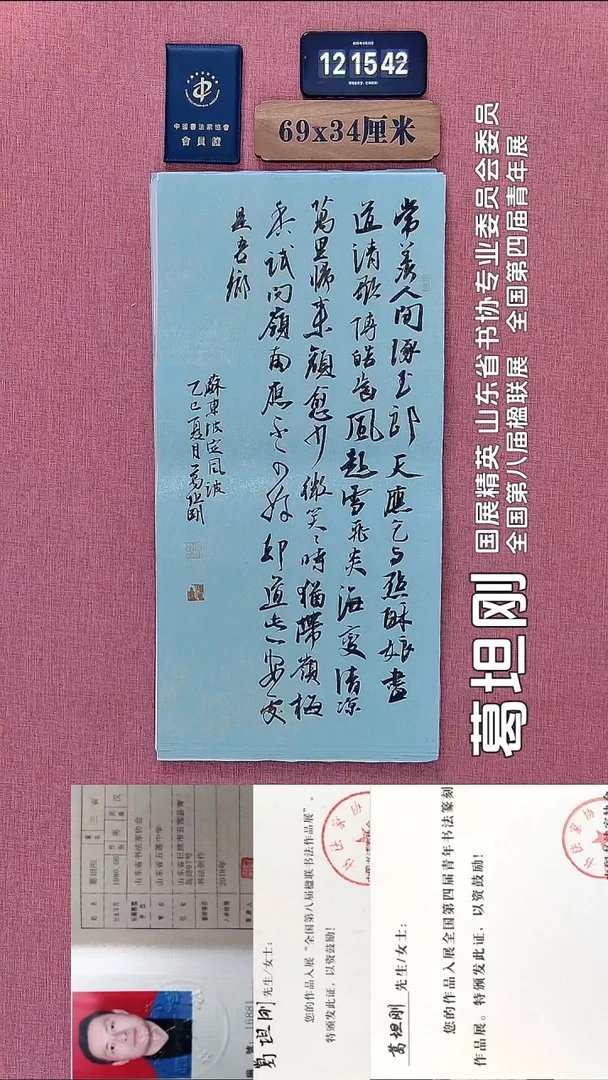 12 15 42
中國書法家協會
會員證
69x34厘米
常羨人間琢玉郎天應乞与點酥娘盡
道清歌傳皓齒風起雪飛炎海變清涼
萬里歸來顏愈少微笑々時猶帶嶺梅
香試問嶺南應不好却道此心安處
是吾鄉
蘇東坡定風波
乙巳夏月葛坦剛
葛坦刚
国展精英 山东省书协专业委员会委员
全国第八届楹联展 全国第四届青年展
葛坦刚
山东省书法家协会
山东省五莲中学
书法创作
2018年
16881
葛坦刚 先生/女士：
您的作品入展“全国第八届楹联书法作品展”。
特颁发此证，以资鼓励！
葛坦刚 先生/女士：
您的作品入展全国第四届青年书法篆刻
作品展。特颁发此证，以资鼓励！